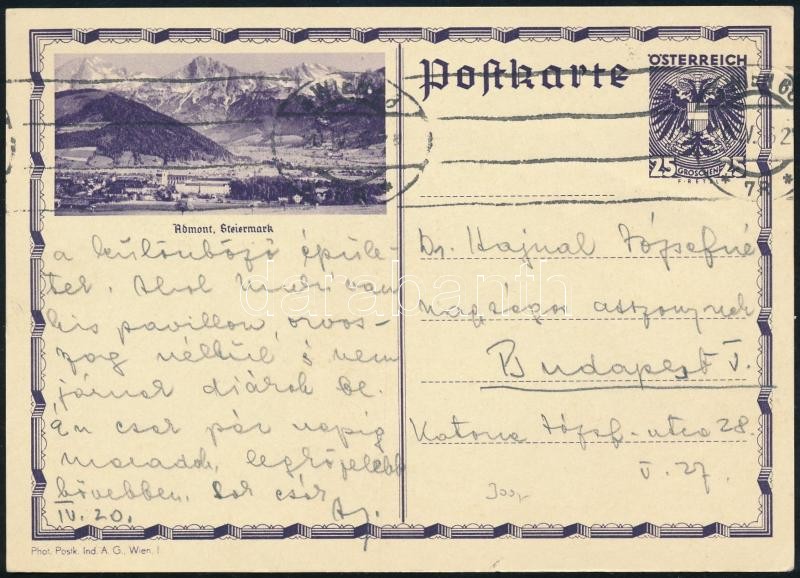 Postkarte
ÖSTERREICH
25 GROSCHEN 25
Admont, Steiermark
a különböző épüle-
tet. Ahol van
kis pavillon, orvos-
nélkül s nem
járnak diákok be.
Én csak pár napig
maradok, legközelebb
bővebben. Sok csók
IV. 20.
Dr. Hajnal Józsefné
nagyságos asszonynak
Budapest V.
Katona József-utca 28.
V. 27.
Phot. Postk. Ind. A. G., Wien, I
darabanth.com